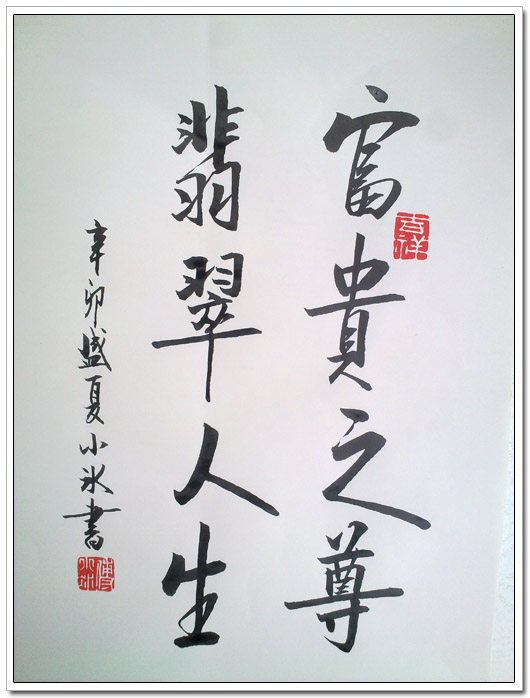 富貴之尊
翡翠人生
辛卯盛夏小冰書